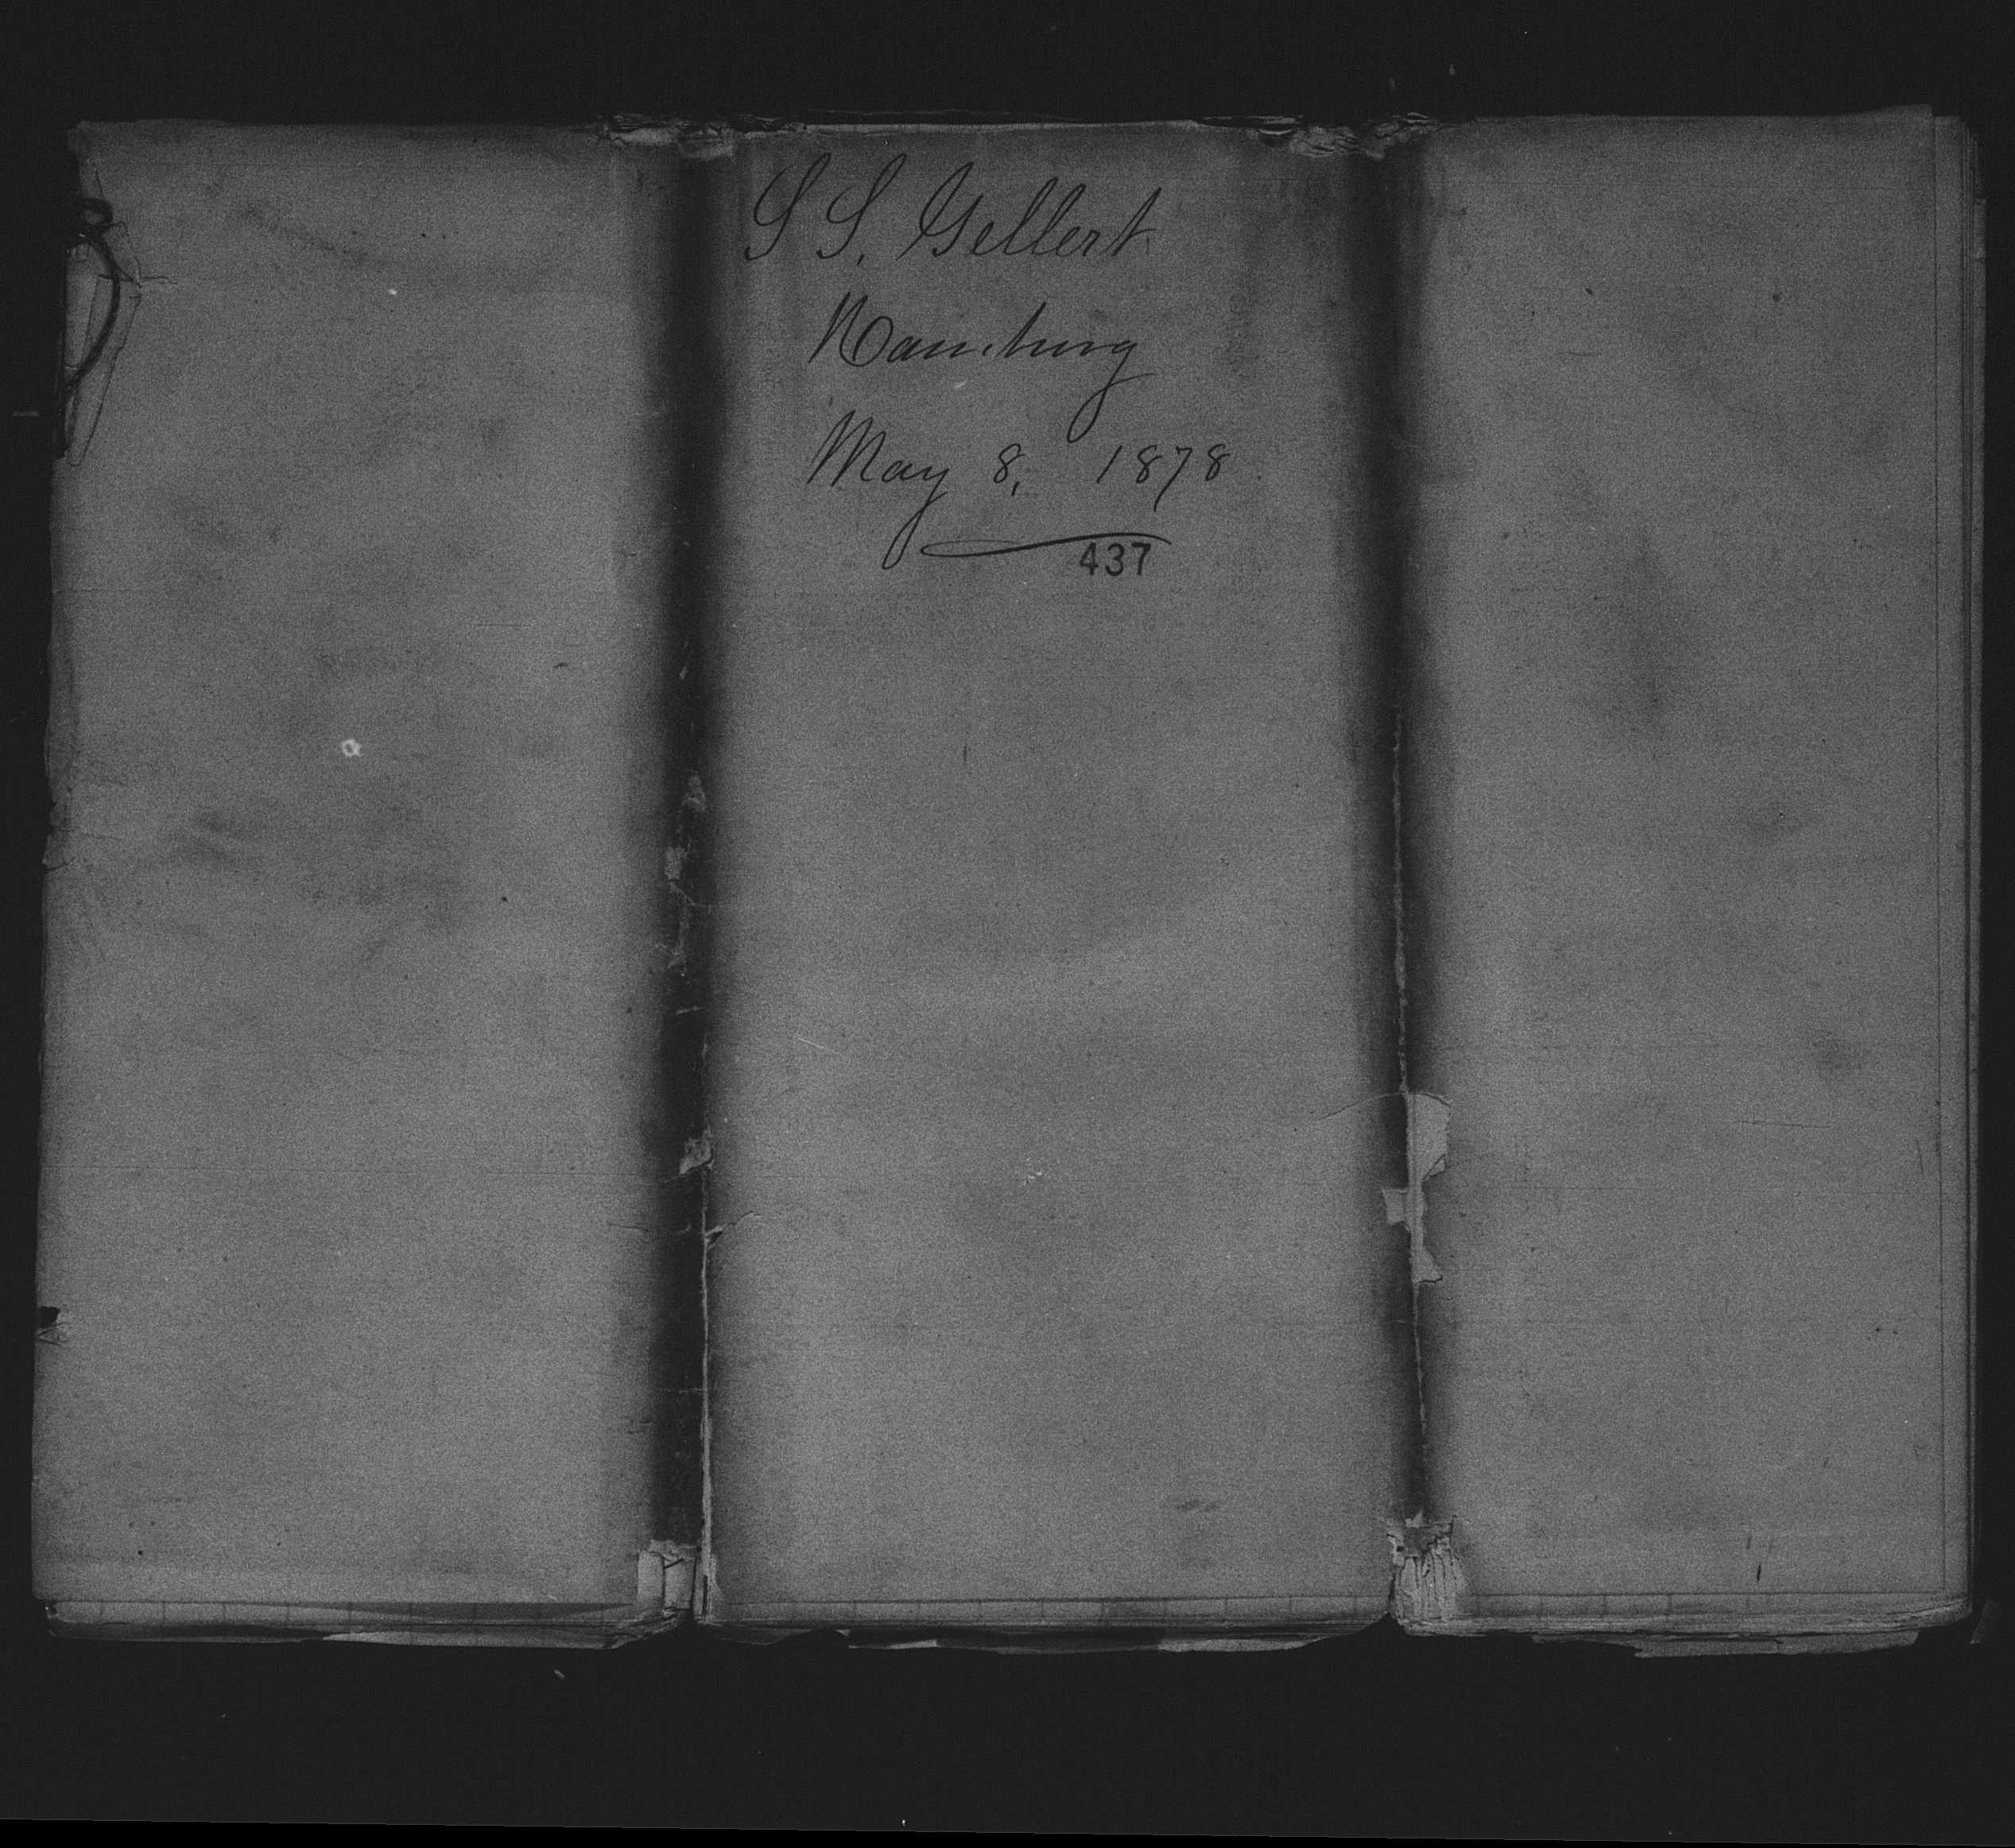 S S. Gellert
Hamburg
May 8, 1878
437